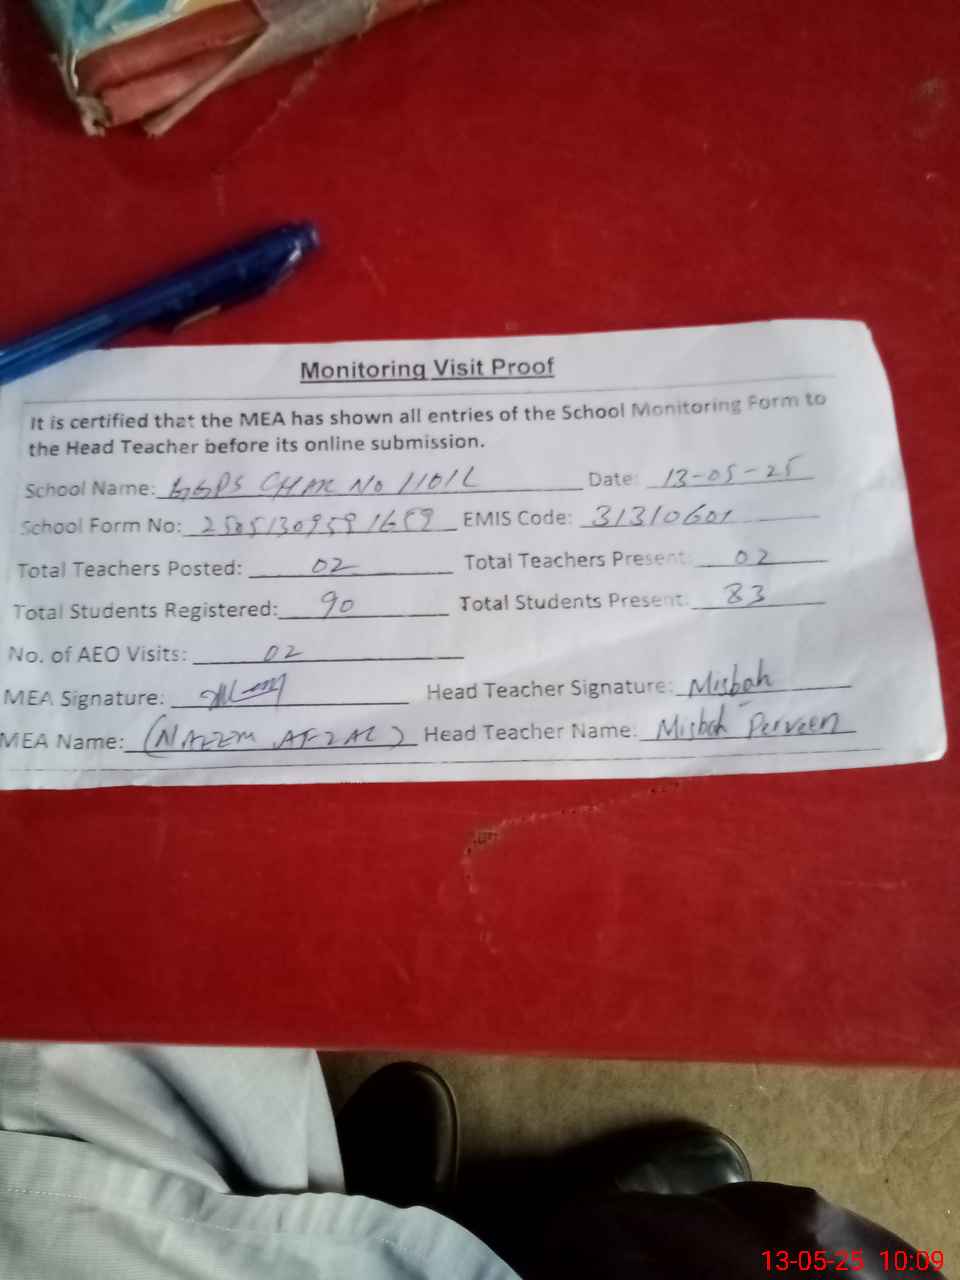 Monitoring Visit Proof
It is certified that the MEA has shown all entries of the School Monitoring Form to
the Head Teacher before its online submission.
School Name: GGPS CHAK No 110/L Date: 13-05-25
School Form No: EMIS Code: 31310601
Total Teachers Posted: 02 Total Teachers Present: 02
Total Students Registered: 90 Total Students Present: 83
No. of AEO Visits: 02
MEA Signature: Head Teacher Signature: Misbah
MEA Name: (NAEEM AFZAL) Head Teacher Name: Misbah Perveen
13-05-25 10:09